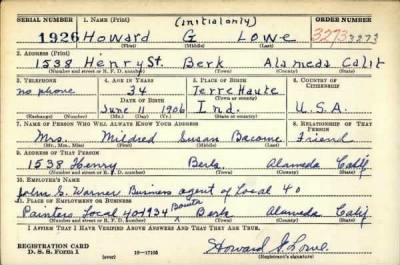 SERIAL NUMBER 1. NAME (Print) (initial only) ORDER NUMBER
1926 Howard G Lowe 3273 3273
(First) (Middle) (Last)
2. ADDRESS (Print)
1538 Henry St. Berk Alameda Calif
(Number and street or R. F. D. number) (Town) (County) (State)
3. TELEPHONE 4. AGE IN YEARS 5. PLACE OF BIRTH 6. COUNTRY OF CITIZENSHIP
no phone 34 Terre Haute
DATE OF BIRTH (Town or county)
June 11 1906 Ind. U.S.A.
(Exchange) (Number) (Mo.) (Day) (Yr.) (State or country)
7. NAME OF PERSON WHO WILL ALWAYS KNOW YOUR ADDRESS 8. RELATIONSHIP OF THAT PERSON
Mrs. Mildred Susan Bacome Friend
(Mr., Mrs., Miss) (First) (Middle) (Last)
9. ADDRESS OF THAT PERSON
1538 Henry Berk Alameda Calif
(Number and street or R. F. D. number) (Town) (County) (State)
10. EMPLOYER'S NAME
John G. Warner Business agent of Local 40
11. PLACE OF EMPLOYMENT OR BUSINESS
Painters Local 40 1934 Bonita Berk Alameda Calif
(Number and street or R. F. D. number) (Town) (County) (State)
I AFFIRM THAT I HAVE VERIFIED ABOVE ANSWERS AND THAT THEY ARE TRUE.
REGISTRATION CARD
D. S. S. Form 1 (over) 16—17105 Howard G. Lowe
(Registrant's signature)